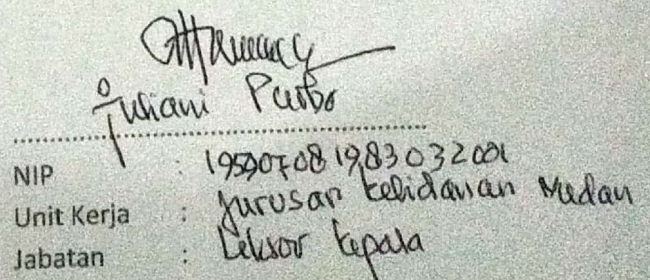 Juliani Purba
NIP : 195907081983032001
Unit Kerja : Jurusan Kebidanan Medan
Jabatan : Lektor Kepala